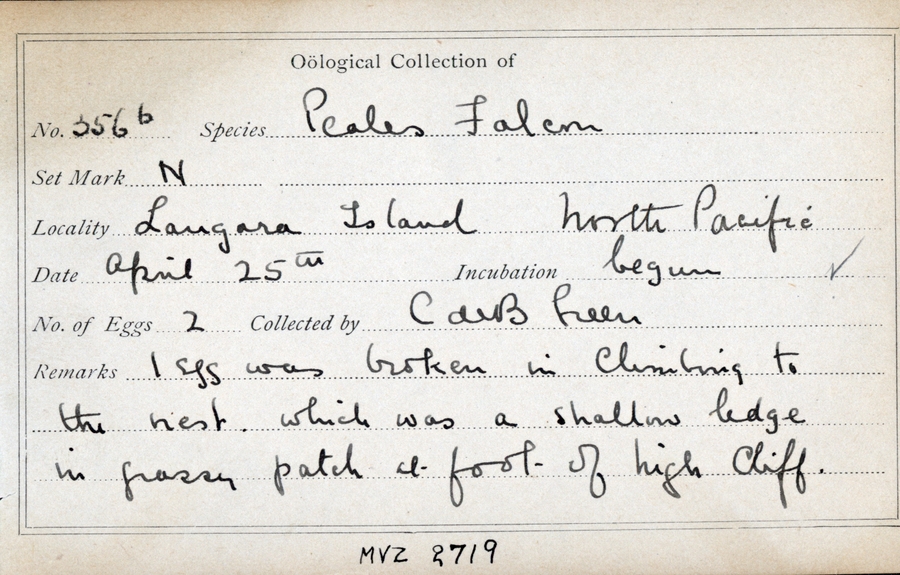 Oölogical Collection of
No. 356 b Species Peales Falcon
Set Mark N
Locality Langara Island North Pacific
Date April 25th Incubation begun ✓
No. of Eggs 2 Collected by C deB Green
Remarks 1 Egg was broken in Climbing to
the nest. which was a shallow ledge
in grassy patch at foot of high Cliff.
MVZ 2719